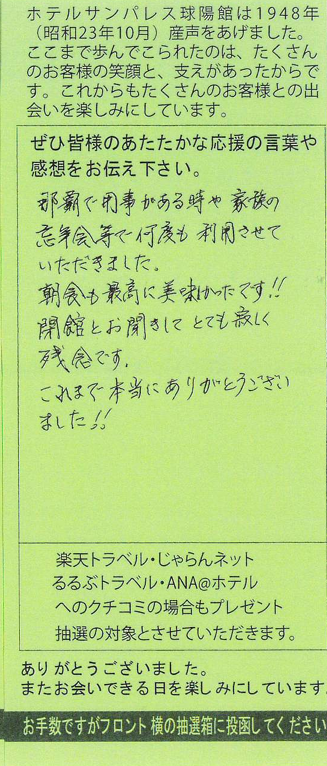 ホテルサンパレス球陽館は1948年
（昭和23年10月）産声をあげました。
ここまで歩んでこられたのは、たくさん
のお客様の笑顔と、支えがあったからで
す。これからもたくさんのお客様との出
会いを楽しみにしています。
ぜひ皆様のあたたかな応援の言葉や
感想をお伝え下さい。
那覇で用事がある時や家族の
忘年会等で何度も利用させて
いただきました。
朝食も最高に美味かったです!!
閉館とお聞きしてとても寂しく
残念です。
これまで本当にありがとうござい
ました!!
楽天トラベル・じゃらんネット
るるぶトラベル・ANA@ホテル
へのクチコミの場合もプレゼント
抽選の対象とさせていただきます。
ありがとうございました。
またお会いできる日を楽しみにしています
お手数ですがフロント横の抽選箱に投函してください